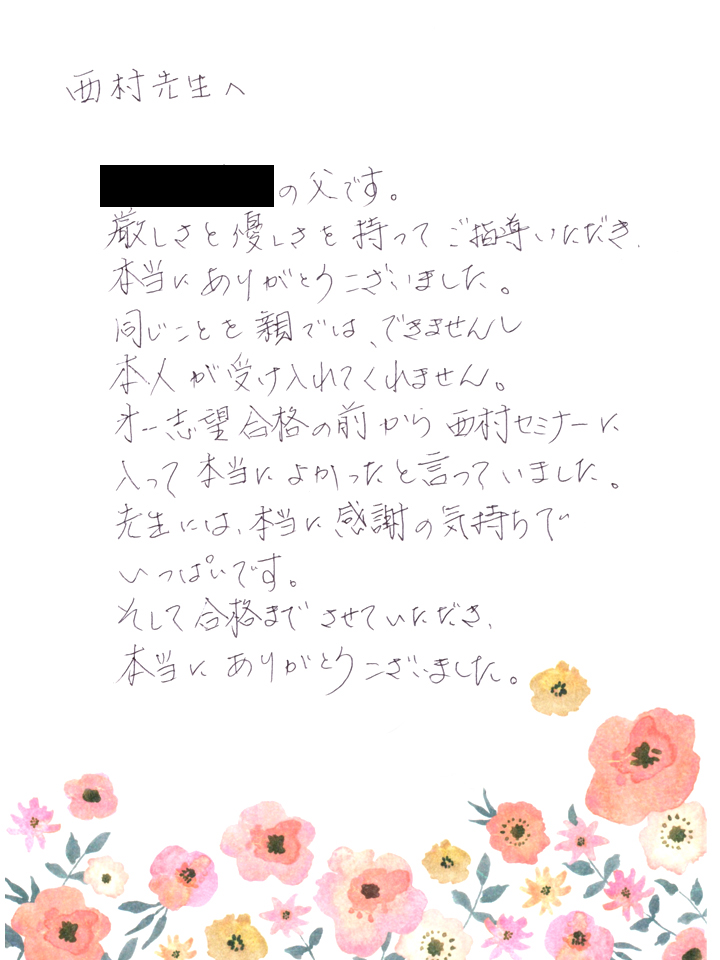 西村先生へ
の父です。
厳しさと優しさを持ってご指導いただき、
本当にありがとうございました。
同じことを親では、できませんし
本人が受け入れてくれません。
オ一志望合格の前から西村セミナーに
入って本当によかったと言っていました。
先生には、本当に感謝の気持ちで
いっぱいです。
そして合格までさせていただき、
本当にありがとうございました。